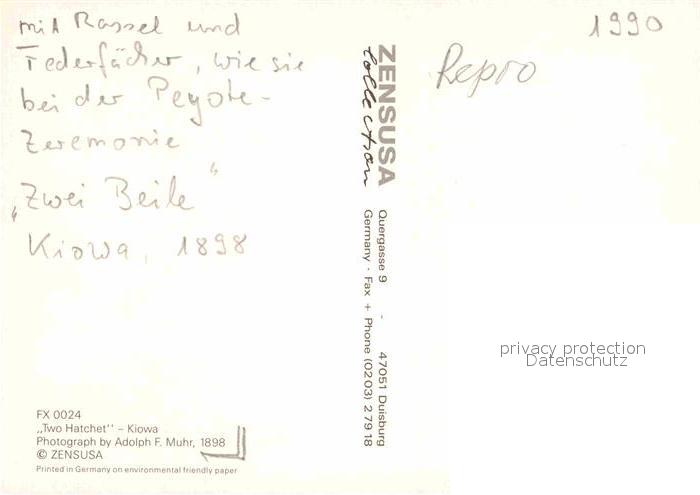 mit Rassel und
Federfächer, wie sie
bei der Peyote-
Zeremonie
„Zwei Beile“
Kiowa, 1898
FX 0024
„Two Hatchet'' – Kiowa
Photograph by Adolph F. Muhr, 1898
© ZENSUSA
Printed in Germany on environmental friendly paper
ZENSUSA
Collection
Quergasse 9 - 47051 Duisburg
Germany · Fax + Phone (0203) 2 79 18
1990
Repro
privacy protection
Datenschutz